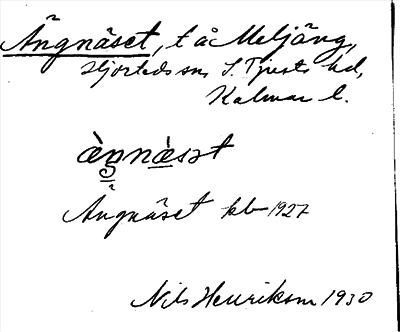 Ängnäset, t å Meljäng,
Hjorteds sn, S. Tjusts hd,
Kalmar l.
ὰŋnὰsət
Ängnäset kb 1927
Nils Henrikson 1930